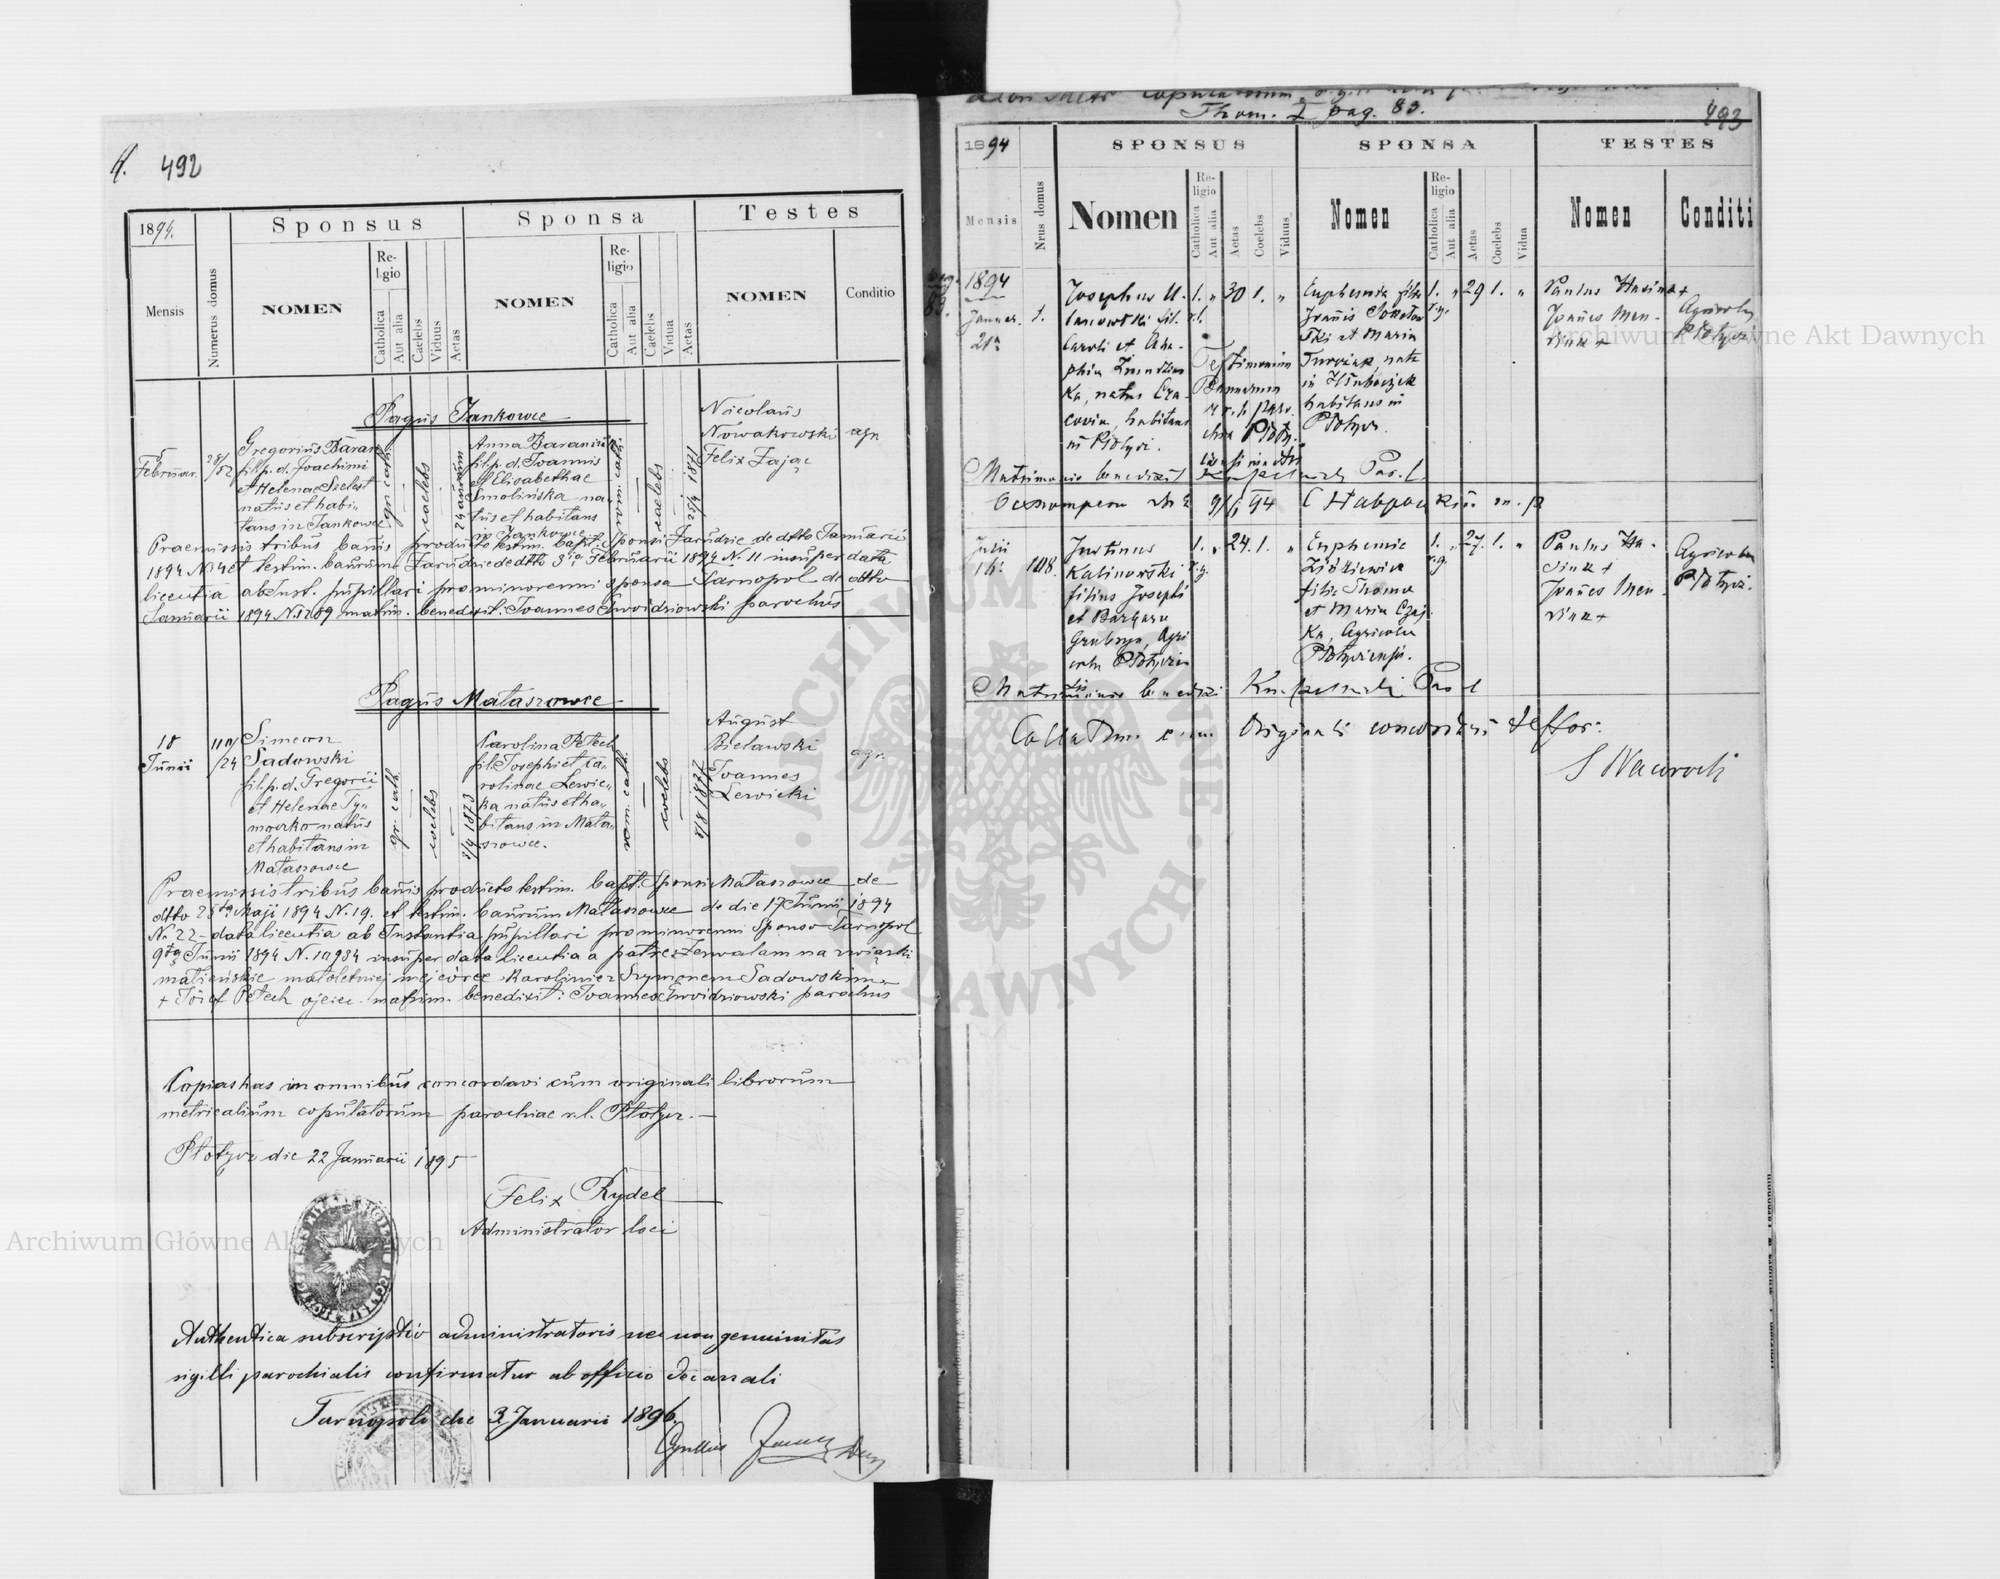 492
1894.
Sponsus
Sponsa
Testes
Mensis
Numerus domus
NOMEN
Religio
Catholica
Aut alia
Caelebs
Viduus
Aetas
NOMEN
Religio
Catholica
Aut alia
Caelebs
Vidua
Aetas
NOMEN
Conditio
Pagus Jankowce
5
Februar.
28/52
Gregorius Baran
fil. p. d. Joachimi
et Helenae Szelest
natus et habi-
tans in Jankowce
gr. cath.
caelebs
24 annorum
Anna Baraniuk
fil. p. d. Joannis
et Elisabethae
Smolińska na-
tus et habitans
in Jankowce
rom. cath.
caelebs
25/4 1871
Nicolaus
Nowakowski
Felix Zając
agr.
Praemissis tribus bannis producto testim. bapt. Sponsi Zarudzie de dtto Januarii
1894 N. 4 et testim. bannum Zarudzie de dtto 3tia Februarii 1894 N. 11 insuper data
licentia ab inst. pupillari pro minorenni sponsa Tarnopol de dtto
Januarii 1894 N. 1209 matrim. benedixit. Joannes Gwoździowski parochus
Pagus Mataszowce
18
Junii
110/24
Simeon
Sadowski
fil. p. d. Gregorii
et Helenae Ty-
moczko natus
et habitans in
Mataszowce
gr. cath.
caelebs
3/4 1873
Carolina Petech
fil. Josephi et Ca-
rolinae Lewic-
ka natus et ha-
bitans in Mata-
szowce.
rom. cath.
caelebs
8/8 1877
August
Bielawski
Joannes
Lewicki
agr.
Praemissis tribus bannis producto testim. bapt. Sponsi Mataszowce de
dtto 28va Maji 1894 N. 19. et testim. bannum Mataszowce de die 17 Junii 1894
N. 22 - data licentia ab Instantia pupillari pro minorenni Sponso Tarnopol
9ta Junii 1894 N. 10984 insuper data licentia a patre: Zezwalam na związki
małżeńskie małoletniej mej córce Karolinie z Szymonem Sadowskim
+ Józef Petech ojciec. matrim. benedixit: Joannes Gwoździowski parochus
Copias has in omnibus concordavi cum originali librorum
metricalium copulatorum parochiae r. l. Płotycz. —
Płotycz die 22 Januarii 1895
Felix Rydel
Administrator loci
Authentica subscriptio administratoris nec non genuinitas
sigilli parochialis confirmatur ab officio decanali
Tarnopoli die 3 Januarii 1896.
Thom. I pag. 83.
493
1894
SPONSUS
SPONSA
TESTES
Mensis
Nrus domus
Nomen
Religio
Catholica
Aut alia
Aetas
Coelebs
Viduus
Nomen
Religio
Catholica
Aut alia
Aetas
Coelebs
Vidua
Nomen
Conditi
pag.
83.
1894
Januar.
21a
1.
Josephus U-
lanowski fil.
Caroli et Aga-
phia Żmudziń-
ka, natus Cra-
covia, habitans
in Płotycz.
1.
"
30
1.
"
Testimonium
Bannorum
Euphemia filia
Joannis Sokołow-
ski et Maria
Turczak, nata
in Hłuboczek
habitans in
Płotycz.
1.
"
29
1.
"
Paulus Hasina+
Joannes Men-
dina +
Agricolae
Płotycz
Matrimonio benedixit
Par. l.
9/1 94
Julii
1a
108.
Justinus
Kalinowski
filius Josephi
et Barbara
Grabczyn, Agri
cola Płotycien
sis
1.
r. g.
24.
1.
"
Euphemia
Żółkiewicz
filia Thoma
et Maria Czaj-
ka, Agricolae
Płotyciensis.
1.
r. g.
27.
1.
"
Paulus Ha-
sina +
Joannes Men-
dina +
Agricolae
Płotycz.
Collatum cum Originali concordari testor:
S Nawrocki
ARCHIWUM GŁÓWNE AKT DAWNYCH
Archiwum Główne Akt Dawnych
Archiwum Główne Akt Dawnych